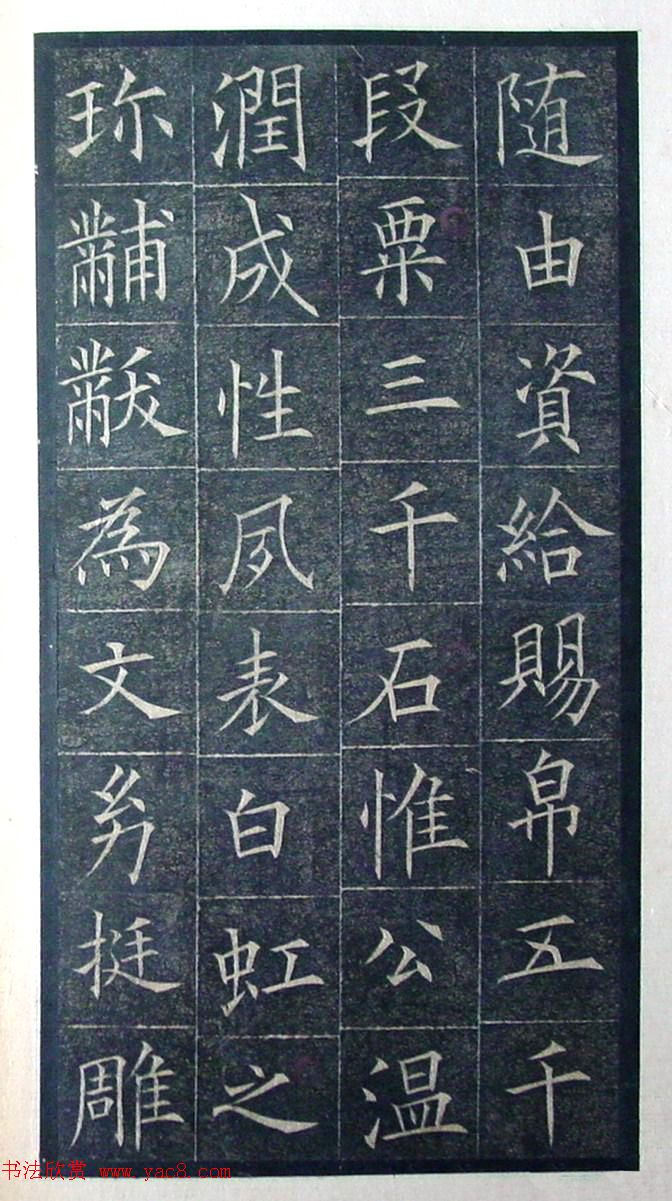 随由資給賜帛五千
段粟三千石惟公温
潤成性夙表白虹之
珎黼黻為文㓜挺雕
书法欣赏 www.yac8.com